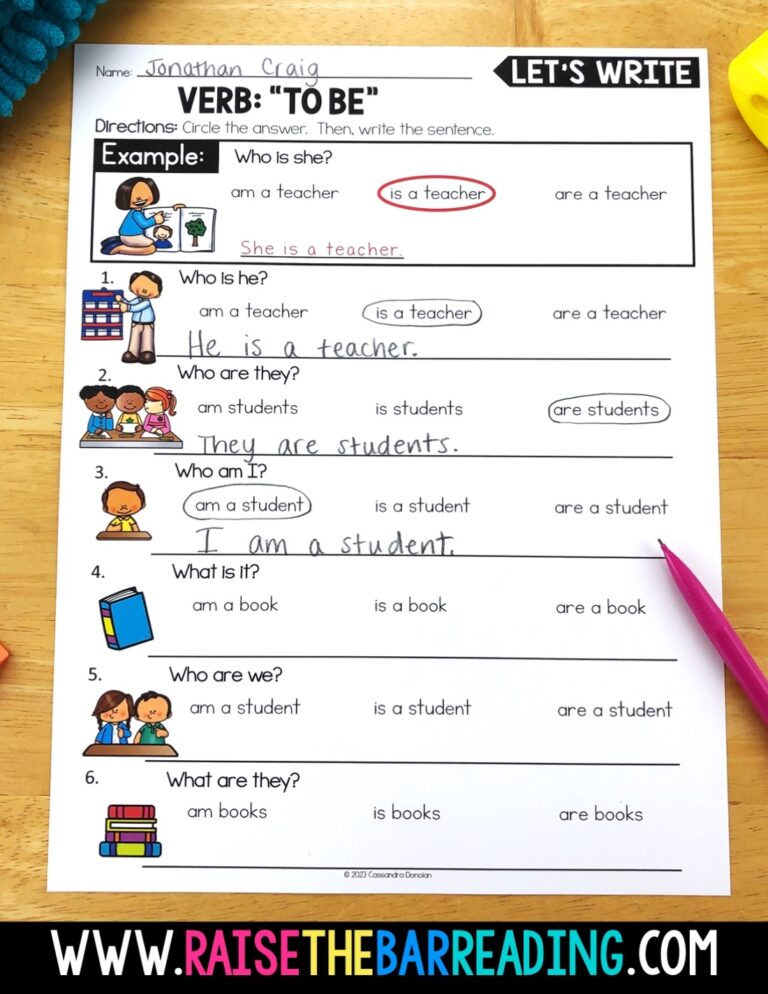 Name: Jonathan Craig
LET'S WRITE
VERB: "TO BE"
Directions: Circle the answer. Then, write the sentence.
Example: Who is she?
am a teacher is a teacher are a teacher
She is a teacher.
1. Who is he?
am a teacher is a teacher are a teacher
He is a teacher.
2. Who are they?
am students is students are students
They are students.
3. Who am I?
am a student is a student are a student
I am a student.
4. What is it?
am a book is a book are a book
5. Who are we?
am a student is a student are a student
6. What are they?
am books is books are books
© 2023 Cassandra Donoian
WWW.RAISETHEBARREADING.COM